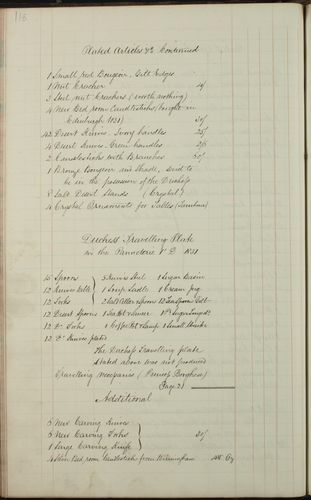 118
Plated Articles &c Continued
1 Small red Bougeoir, Gilt Edges
1 Nut Cracker
3 Steel nut Crackers (worth nothing)
4 New Bed room Candlesticks, bought in
Edinburgh 1831)
42 Desert Knives, Ivory handles
4 Desert Knives, Green handles
2 Candlesticks with Branches
1 Bronze Bougeoir and Shade, said to
be in the possession of the Duchess
8 Salt Desert Stands (Crystal)
4 Crystal Ornaments for Tables
Duchess Travelling Plate
in the Panneterie 1831
15 Spoons 5 Knives Steel 1 Sugar Basin
12 Knives Gilt 1 Soup Ladle 1 Cream jug
12 Forks 2 Salt Cellar & Spoon 12 Tea Spoons Gilt
12 Desert Spoons 1 Tea Pot 1 Pr Sugar Tongs Do
12 Do Forks 1 Coffee Pot & Lamp 1 Small
12 Do Knives plated
The Duchess Travelling plate
stated above was not produced
Travelling Necessaries (Princess Borghese)
Page 21
Additional
8 New Carving Knives
8 New Carving Forks
1 Large Carving Knife
4 New Bed room Candlesticks from Birmingham